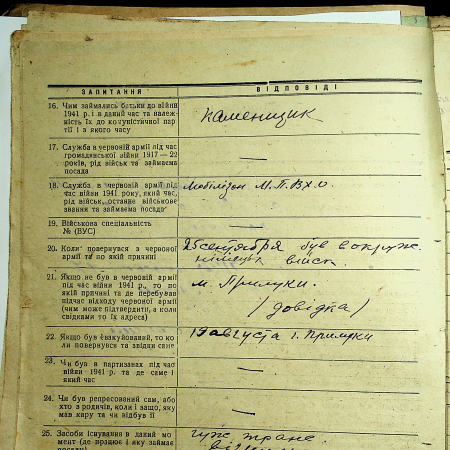 ЗАПИТАННЯ
ВІДПОВІДІ
16. Чим займались батьки до війни
1941 р. і в даний час та належ-
ність їх до комуністичної пар-
тії і з якого часу
каменщик
17. Служба в червоній армії під час
громадянської війни 1917—22
років, рід військ та займаєма
посада
—
18. Служба в червоній армії під
час війни 1941 року, який час,
рід військ, останнє військове
звання та займаєма посада
Мобілізон М.П.В.х.о.
19. Військова спеціальність
№ (ВУС)
—
20. Коли повернувся з червоної
армії та по якій причині
25 сентября був в окруж.
німецьк війск.
21. Якщо не був в червоній армії
під час війни 1941 р., то по
якій причині та де перебував
підчас відходу червоної армії
(чим може підтвердити, а коли
свідками то їх адреса)
м. Прилуки.
/довідка/
22. Якщо був евакуйований, то ко-
ли повернувся та звідки саме
19 августа г. Прилуки
23. Чи був в партизанах під час
війни 1941 р. та де саме і
який час
—
24. Чи був репресований сам, або
хто з родичів, коли і защо, яку
мав кару та чи відбув її
—
25. Засоби існування в даний мо-
мент (де працює і яку займає
посаду)